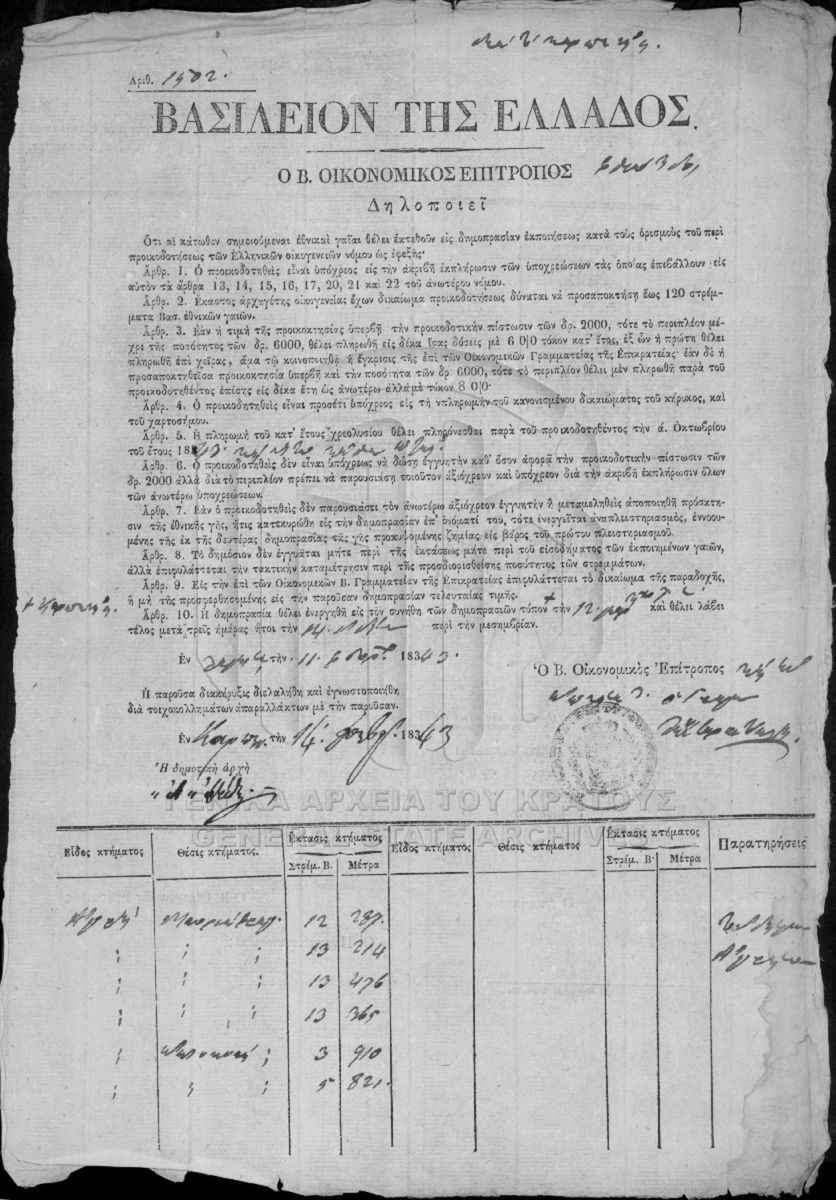 Αριθ. 1502.
ΒΑΣΙΛΕΙΟΝ ΤΗΣ ΕΛΛΑΔΟΣ.
Ο Β. ΟΙΚΟΝΟΜΙΚΟΣ ΕΠΙΤΡΟΠΟΣ
Δηλοποιεῖ
Ὅτι αἱ κάτωθεν σημειούμεναι ἐθνικαὶ γαῖαι θέλει ἐκτεθοῦν εἰς δημοπρασίαν ἐκποιήσεως κατὰ τοὺς ὁρισμοὺς τοῦ περὶ
προικοδοτήσεως τῶν Ἑλληνικῶν οἰκογενειῶν νόμου ὡς ἐφεξῆς·
Ἄρθρ. 1. Ὁ προικοδοτηθεὶς εἶναι ὑπόχρεος εἰς τὴν ἀκριβῆ ἐκπλήρωσιν τῶν ὑποχρεώσεων τὰς ὁποίας ἐπιβάλλουν εἰς
αὐτὸν τὰ ἄρθρα 13, 14, 15, 16, 17, 20, 21 καὶ 22 τοῦ ἀνωτέρου νόμου.
Ἄρθρ. 2. Ἕκαστος ἀρχηγέτης οἰκογενείας ἔχων δικαίωμα προικοδοτήσεως δύναται νὰ προσαποκτήσῃ ἕως 120 στρέμ-
ματα Βασ. ἐθνικῶν γαιῶν.
Ἄρθρ. 3. Ἐὰν ἡ τιμὴ τῆς προικοκτησίας ὑπερβῇ τὴν προικοδοτικὴν πίστωσιν τῶν δρ. 2000, τότε τὸ περιπλέον μέ-
χρι τῆς ποσότητος τῶν δρ. 6000, θέλει πληρωθῆ εἰς δέκα ἴσας δόσεις μὲ 6 0|0 τόκον κατ' ἔτος, ἐξ ὧν ἡ πρώτη θέλει
πληρωθῆ ἐπὶ χεῖρας, ἅμα τῷ κοινοποιηθῇ ἡ ἔγκρισις τῆς ἐπὶ τῶν Οἰκονομικῶν Γραμματείας τῆς Ἐπικρατείας· ἐὰν δὲ ἡ
προσαποκτηθεῖσα προικοκτησία ὑπερβῇ καὶ τὴν ποσότητα τῶν δρ. 6000, τότε τὸ περιπλέον θέλει μὲν πληρωθῆ παρὰ τοῦ
προικοδοτηθέντος ἐπίσης εἰς δέκα ἔτη ὡς ἀνωτέρω ἀλλὰ μὲ τόκον 8 0|0·
Ἄρθρ. 4. Ὁ προικοδοτηθεὶς εἶναι προσέτι ὑπόχρεος εἰς τὴν πληρωμὴν τοῦ κανονισμένου δικαιώματος τοῦ κήρυκος, καὶ
τοῦ χαρτοσήμου.
Ἄρθρ. 5. Ἡ πληρωμὴ τοῦ κατ' ἔτους χρεολυσίου θέλει πληρόνεσθαι παρὰ τοῦ προικοδοτηθέντος τὴν ά. Ὀκτωβρίου
τοῦ ἔτους 18
Ἄρθρ. 6. Ὁ προικοδοτηθεὶς δὲν εἶναι ὑπόχρεως νὰ δώσῃ ἐγγυητὴν καθ' ὅσον ἀφορᾷ τὴν προικοδοτικὴν πίστωσιν τῶν
δρ. 2000 ἀλλὰ διὰ τὸ περιπλέον πρέπει νὰ παρουσιάσῃ τοιοῦτον ἀξιόχρεον καὶ ὑπόχρεον διὰ τὴν ἀκριβῆ ἐκπλήρωσιν ὅλων
τῶν ἀνωτέρω ὑποχρεώσεων.
Ἄρθρ. 7. Ἐὰν ὁ προικοδοτηθεὶς δὲν παρουσιάσει τὸν ἀνωτέρω ἀξιόχρεον ἐγγυητὴν ἢ μεταμεληθεὶς ἀποποιηθῆ πρόσκτη-
σιν τῆς ἐθνικῆς γῆς, ἥτις κατεκυρώθη εἰς τὴν δημοπρασίαν ἐπ' ὀνόματί του, τότε ἐνεργεῖται ἀναπλειστηριασμὸς, ἐννοου-
μένης τῆς ἐκ τῆς δευτέρας δημοπρασίας τῆς γῆς προκυψομένης ζημίας εἰς βάρος τοῦ πρώτου πλειστηριασμοῦ.
Ἄρθρ. 8. Τὸ δημόσιον δὲν ἐγγυᾶται μήτε περὶ τῆς ἐκτάσεως μήτε περὶ τοῦ εἰσοδήματος τῶν ἐκποιημένων γαιῶν,
ἀλλὰ ἐπιφυλάττεται τὴν τακτικὴν καταμέτρησιν περὶ τῆς προσδιορισθείσης ποσότητος τῶν στρεμμάτων.
Ἄρθρ. 9. Εἰς τὴν ἐπὶ τῶν Οἰκονομικῶν Β. Γραμματείαν τῆς Ἐπικρατείας ἐπιφυλάττεται τὸ δικαίωμα τῆς παραδοχῆς,
ἢ μὴ τῆς προσφερθησομένης εἰς τὴν παροῦσαν δημοπρασίαν τελευταίας τιμῆς.
Ἄρθρ. 10. Ἡ δημοπρασία θέλει ἐνεργηθῆ εἰς τὸν συνήθη τῶν δημοπρασιῶν τόπον τὴν 12. καὶ θέλει λάβει
τέλος μετὰ τρεῖς ἡμέρας ἤτοι τὴν 14 περὶ τὴν μεσημβρίαν.
Ἐν τὴν 11 1843.
Ὁ Β. Οἰκονομικὸς Ἐπίτροπος
Ἡ παροῦσα διακήρυξις διελαλήθη καὶ ἐγνωστοποιήθη
διὰ τοιχοκολλημάτων ἀπαραλλάκτων μὲ τὴν παροῦσαν.
Ἐν τὴν 14 1843
Ἡ δημοτικὴ ἀρχὴ
ΓΕΝΙΚΑ ΑΡΧΕΙΑ ΤΟΥ ΚΡΑΤΟΥΣ
GENERAL STATE ARCHIVES
Εἶδος κτήματος Θέσις κτήματος. Ἔκτασις κτήματος Εἶδος κτήματος Θέσις κτήματος Ἔκτασις κτήματος Παρατηρήσεις
Στρέμ. Β. Μέτρα Στρέμ. Β. Μέτρα
12 287.
13 214
13 476
13 365
3 910
5 821.